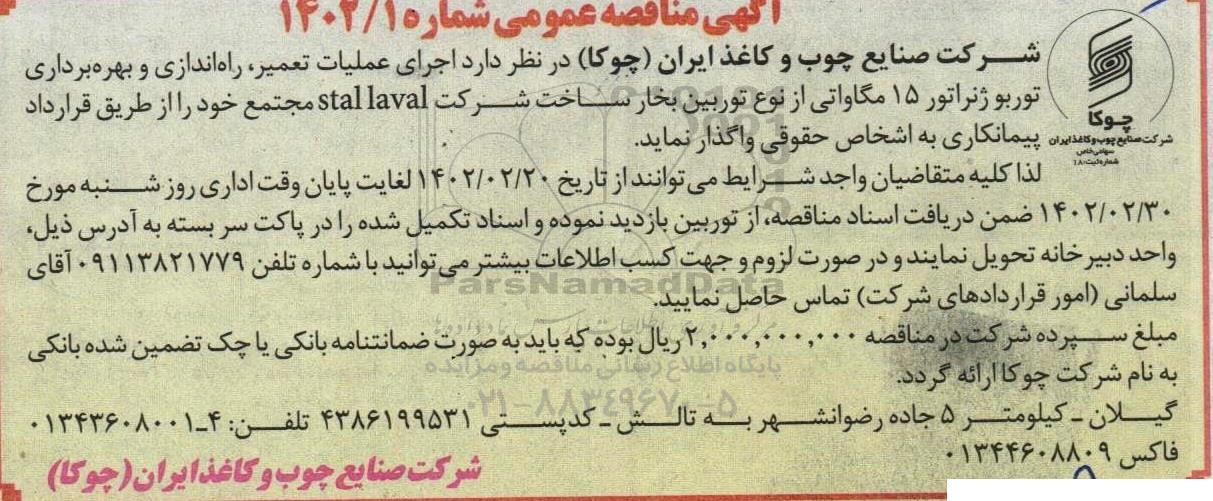 آگهی مناقصه عمومی شماره ۱۴۰۲/۱
شرکت صنایع چوب و کاغذ ایران (چوکا) در نظر دارد اجرای عملیات تعمیر، راه‌اندازی و بهره‌برداری
توربو ژنراتور ۱۵ مگاواتی از نوع توربین بخار ساخت شرکت stal laval مجتمع خود را از طریق قرارداد
پیمانکاری به اشخاص حقوقی واگذار نماید.
چوکا
شرکت صنایع چوب و کاغذ ایران
سهامی خاص
شماره ثبت ۱۸۰
لذا کلیه متقاضیان واجد شرایط می‌توانند از تاریخ ۱۴۰۲/۰۲/۲۰ لغایت پایان وقت اداری روز شنبه مورخ
۱۴۰۲/۰۲/۳۰ ضمن دریافت اسناد مناقصه، از توربین بازدید نموده و اسناد تکمیل شده را در پاکت سر بسته به آدرس ذیل،
واحد دبیرخانه تحویل نمایند و در صورت لزوم و جهت کسب اطلاعات بیشتر می‌توانید با شماره تلفن ۰۹۱۱۳۸۲۱۷۷۹ آقای
سلمانی (امور قراردادهای شرکت) تماس حاصل نمایید.
ParsNamadData
مبلغ سپرده شرکت در مناقصه ۲,۰۰۰,۰۰۰,۰۰۰ ریال بوده که باید به صورت ضمانتنامه بانکی یا چک تضمین شده بانکی
پایگاه اطلاع رسانی مناقصه و مزایده
به نام شرکت چوکا ارائه گردد.
۰۲۱-۸۸۳۴۹۶۷۰-۵
گیلان ـ کیلومتر ۵ جاده رضوانشهر به تالش ـ کدپستی ۴۳۸۶۱۹۹۵۳۱ تلفن: ۴ـ۰۱۳۴۳۶۰۸۰۰۱
فاکس ۰۱۳۴۴۶۰۸۸۰۹
شرکت صنایع چوب و کاغذ ایران (چوکا)